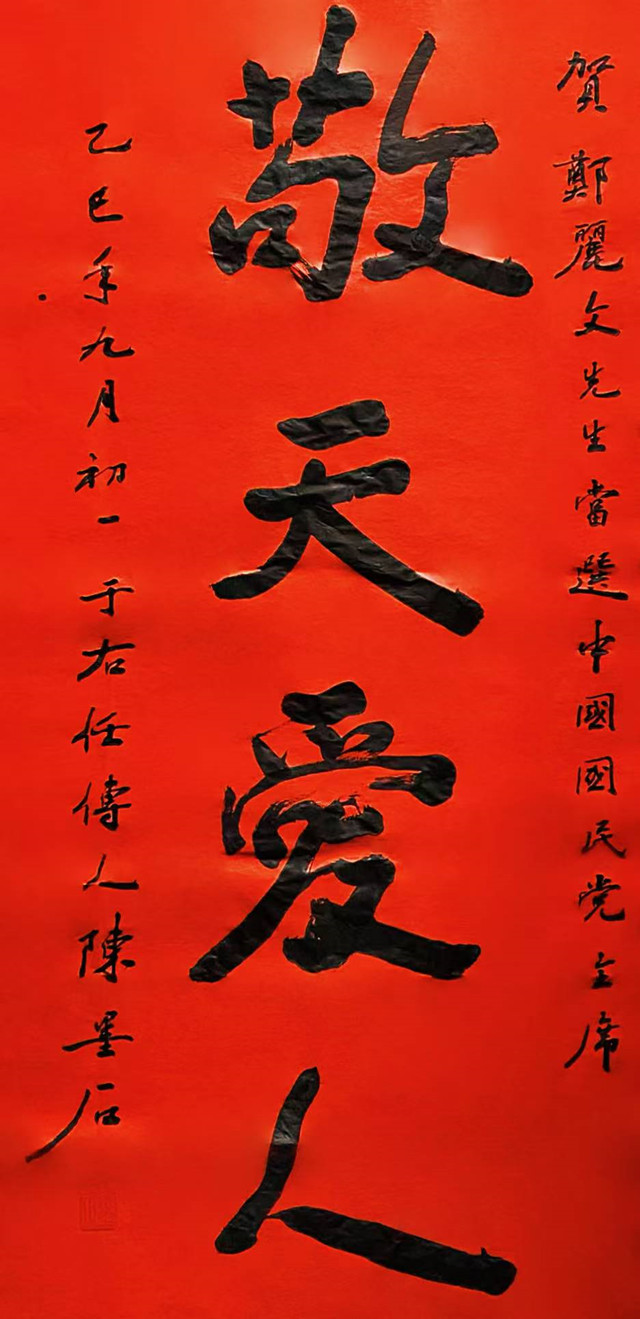 賀鄭麗文先生當選中國國民党主席
敬天愛人
乙巳年九月初一于右任傳人陳墨石